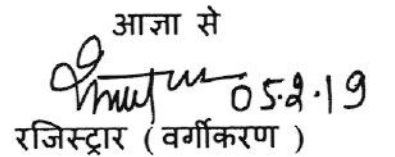 आज्ञा से
05.2.19
रजिस्ट्रार ( वर्गीकरण )